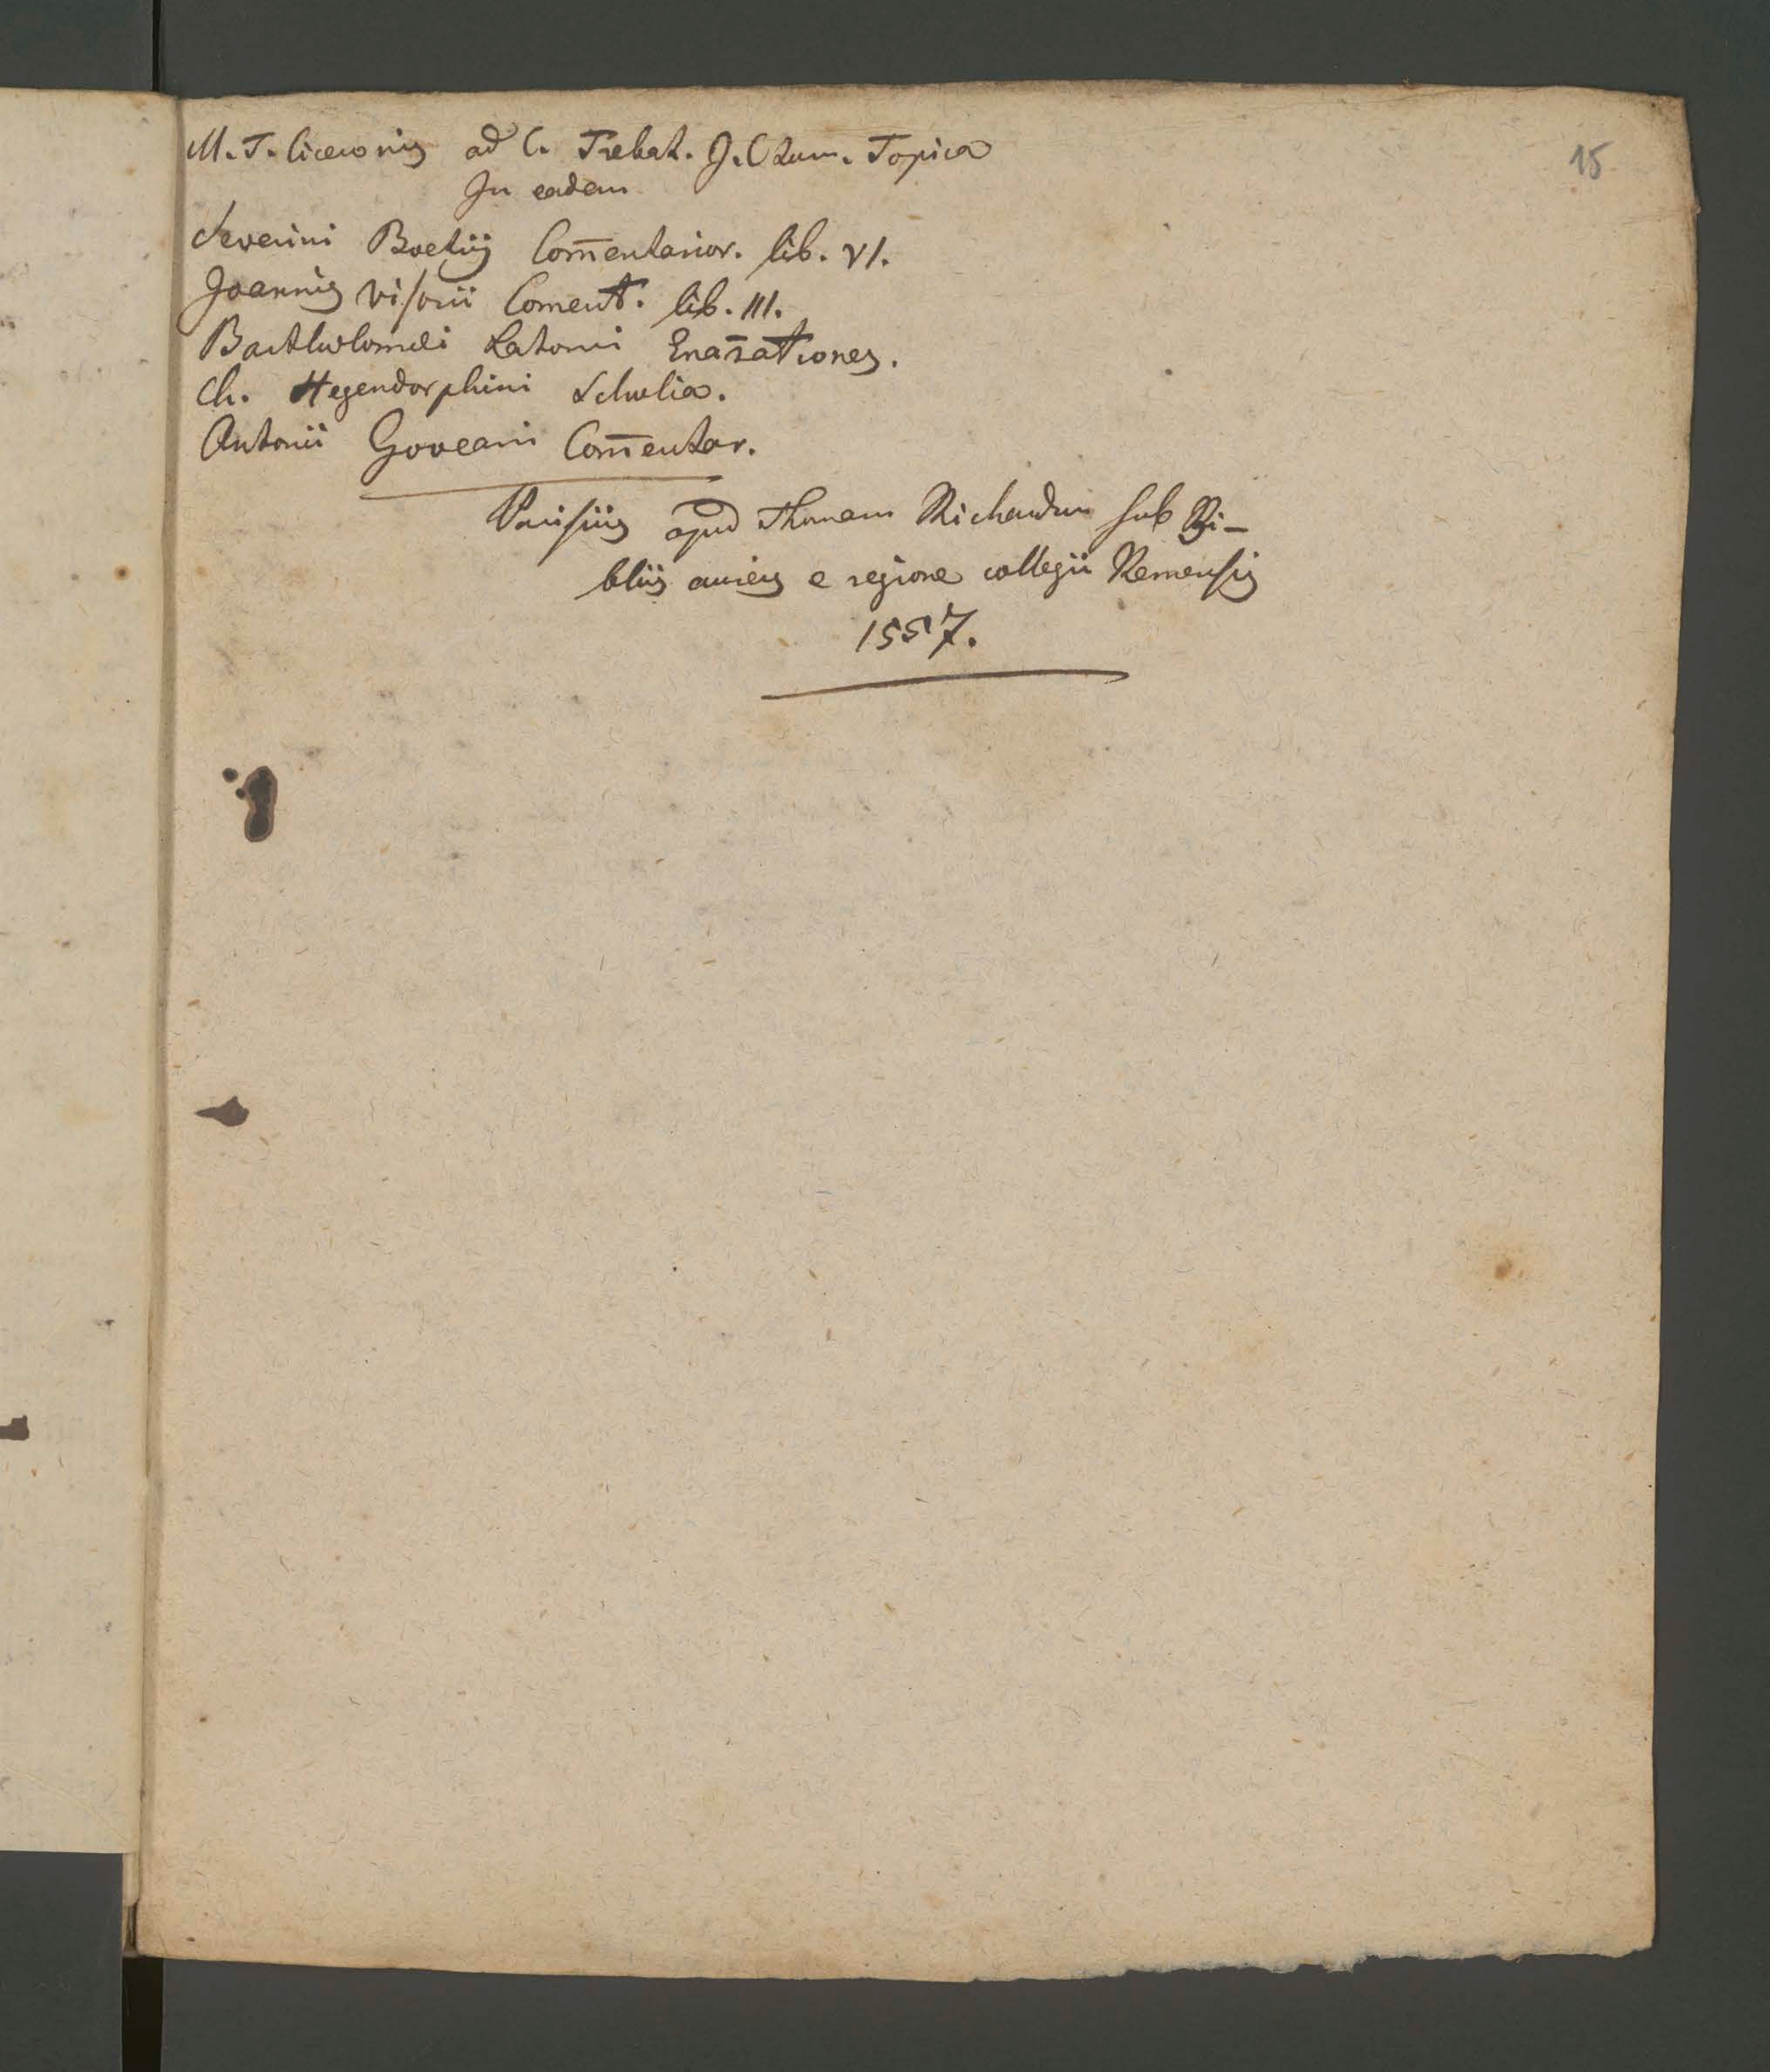 15
M. T. Ciceronis ad C. Trebat. J. Ctum. Topica
In eadem
Severini Boetij Com̄entarior. lib. VI.
Joannis Visorii Coment. lib. III.
Bartholomæi Latomi Enar̄ationes.
Ch. Hegendorphini Scholia.
Antonii Goveani Com̄entar.
Parisiis apud Thomam Richardum sub Bi-
bliis aureis e regione collegii Remensis
1557.